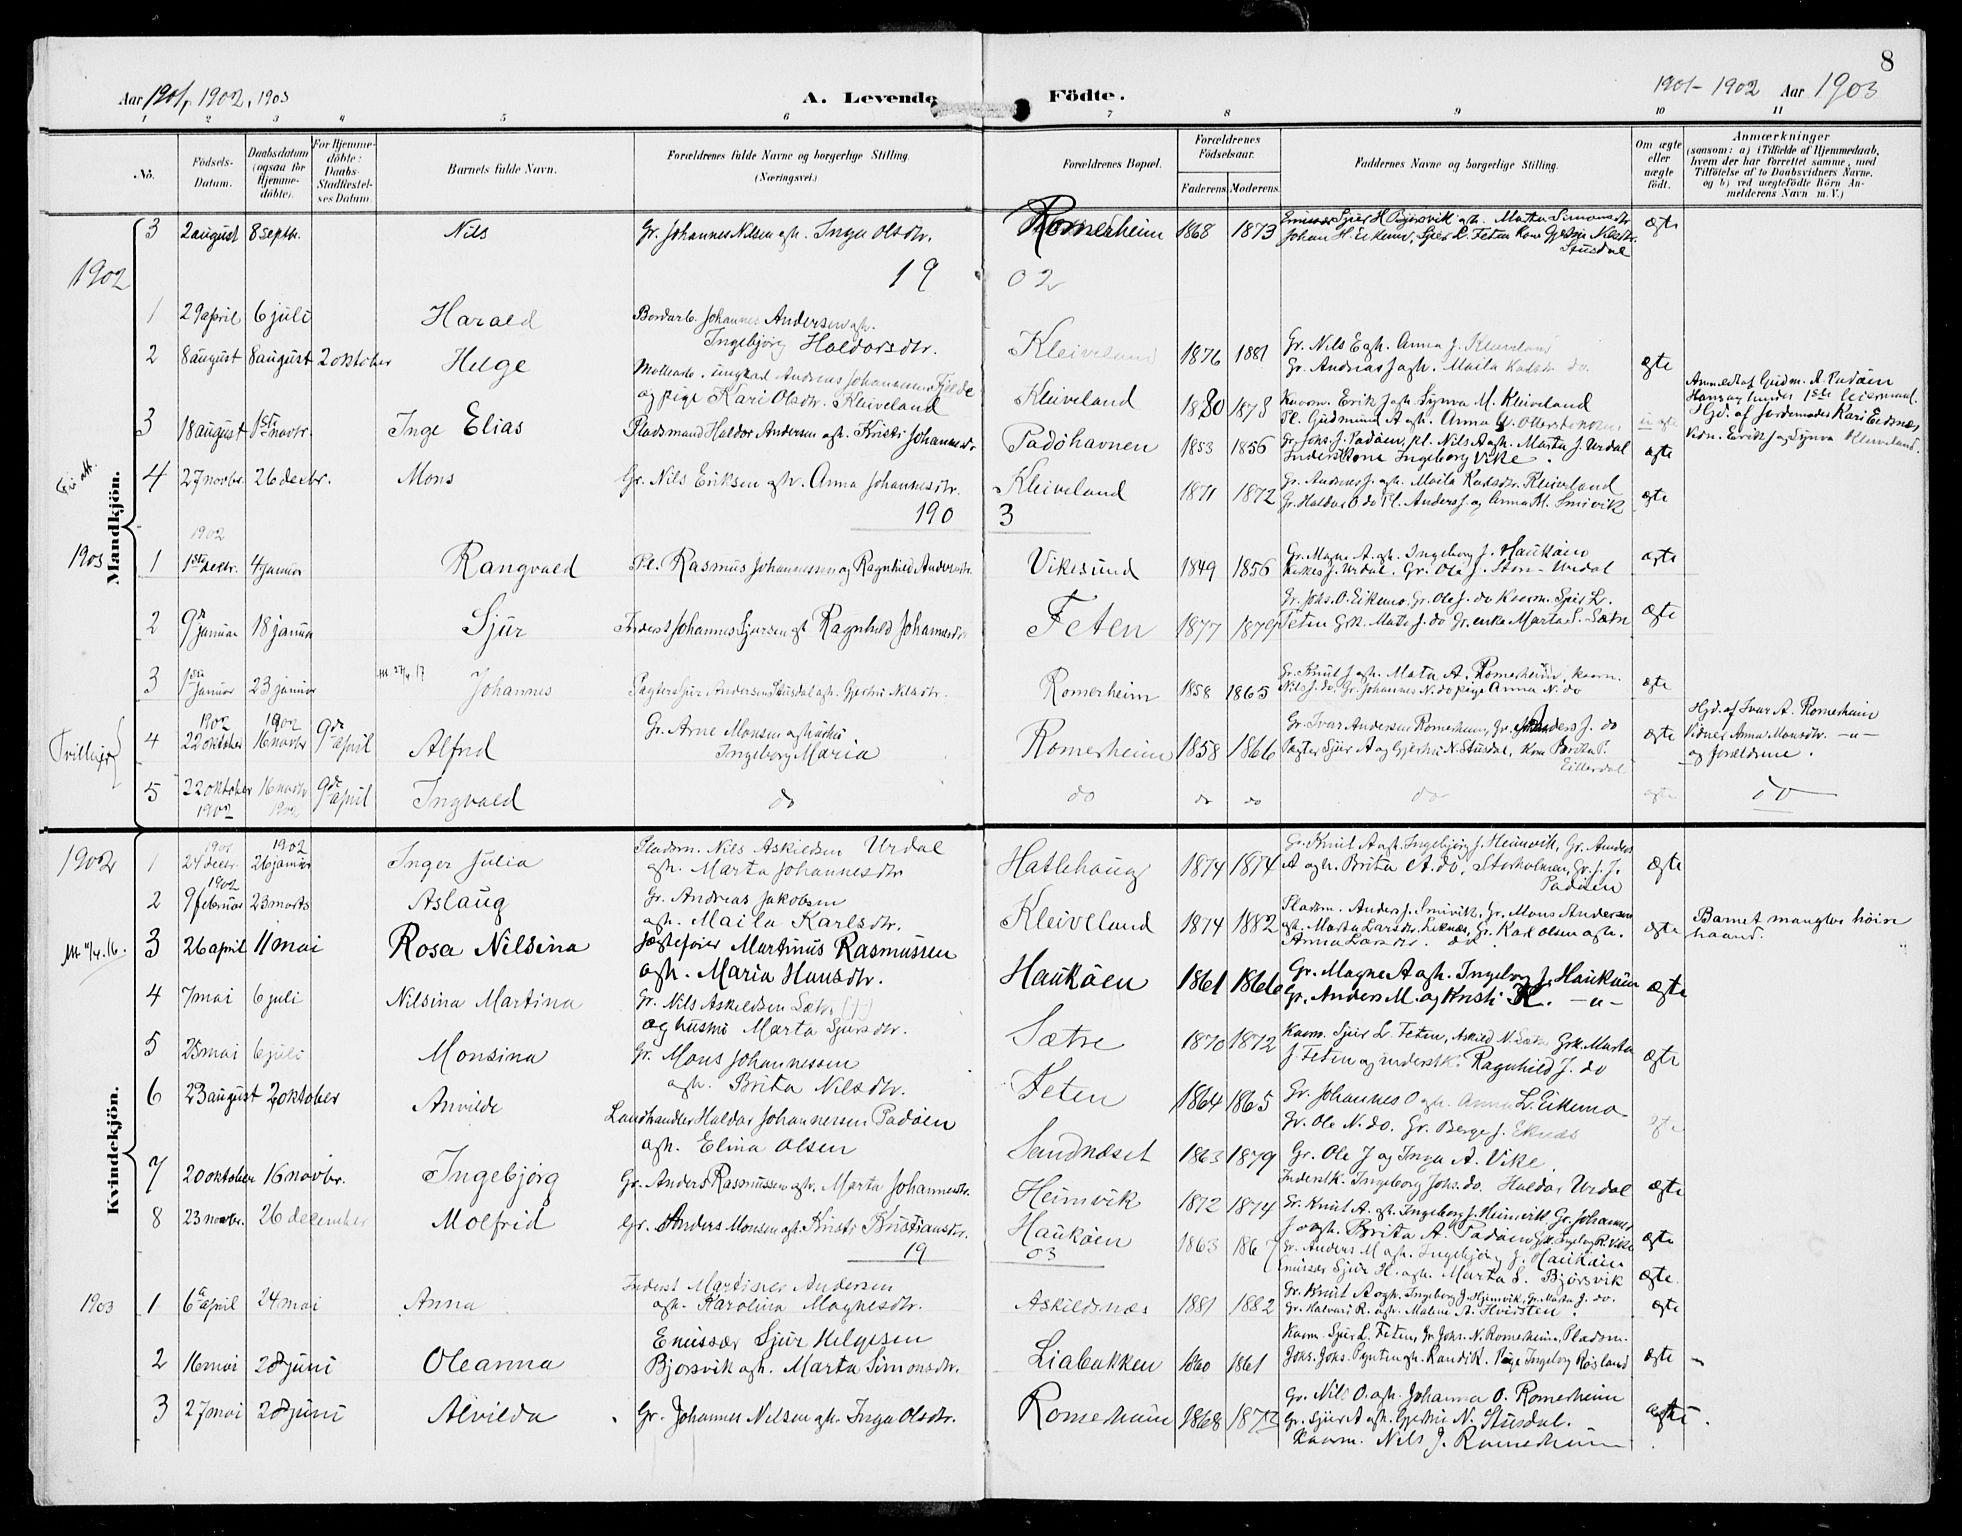 8
Aar 1901, 1902, 1903 A. Levende Födte. 1901-1902 Aar 1903
1 2 3 4 5 6 7 8 9 10 11
No. Födsels-Datum. Daabsdatum (ogsaa for Hjemmedöbte). For Hjemmedöbte: Daabs-Stadfæstelses Datum. Barnets fulde Navn. Forældrenes fulde Navne og borgerlige Stilling. (Næringsvei.) Forældrenes Bopæl. Forældrenes Födselsaar. Faderens Moderens Faddernes Navne og borgerlige Stilling. Om ægte eller uægte födt. Anmærkninger (saasom: a) i Tilfælde af Hjemmedaab, hvem der har forrettet samme, med Tilföielse af to Daabsvidners Navne. og b) ved uægtefödte Börn Anmelderens Navn m. V.)
Mandkjön.
3 2 august 8 septbr. Nils Gr. Johannes Nilsen og h. Inga Olsdtr. Romerheim 1868 1873 Emissær Sjur H Bjorsvik og h. Marta Simonsdtr. ægte
Johan H. Eikemo, Sjur L. Feten Kone Gjertri Nilsdtr.
Stusdal
1902 19 02
1 29 april 6 juli Harald Bordarb. Johannes Andersen og h.
Ingebjörg Haldorsdtr. Kleiveland 1876 1881 Gr. Nils E og h. Anna J. Kleiveland
Gr. Andreas J og h. Maila Karlsdtr. do. ægte
2 8 august 8 august 2 oktober Helge ungkarl Andreas Johannesen Fjelde
og pige Kari Olsdtr. Kleiveland Kleiveland 1880 1878 Kaarm. Erik J og h. Synva M. Kleiveland
Pl. Gudmund A og h. Anna Anmeldt af Gudm. A. Padöen
3 18 august 1ste novbr. Inge Elias Pladsmand Haldor Andersen og h. Kristi Johannesdtr. Padöhavnen 1853 1856 Gr. Johs. J. Padöen, pl. Nils A og h. Marta J. Urdal
Inderst kone Ingeborg Vike. ægte
Hgd. af Jordemoder Kari Eidsnes
Vidn. Erik J og Synva Kleiveland.
4 27 novbr. 26 decbr. Mons Gr. Nils Eriksen og h. Anna Johannesdtr. Kleiveland 1871 1872 Gr. Andreas J. og h. Maila Karlsdtr. Kleiveland
Gr. Haldor O do Pl. Anders J. og Anna M. Smivik ægte
190 3
1902
1903 1 1ste decbr. 4 januar Rangvald Pl. Rasmus Johannessen og Ragnhild Andersdtr. Vikesund 1849 1856 Gr. Magne A. og h. Ingeborg J. Haukøen
J. Urdal. Gr. Ola J. Stor-Urdal ægte
2 9de januar 18 januar Sjur Inderst Johannes Sjursen og h Ragnhild Johannesdtr Feten 1877 1879 Gr. Johs. O. Eikemo, Gr. Ole J. do Kaarm. Sjur L.
Feten Grk. Marta J. do Gr. enke Marta S. Sætre ægte
3 1ste januar 23 januar Johannes Pagter Sjur Andersen Stusdal og h. Gjertri Nilsdtr. Romerheim 1858 1865 Gr. Knut J og h. Mata A. Romerheim, Kaarm.
Nils J. do, Gr. Johannes N. do pige Anna N. do ægte
Tvillinger
4 1902 22 oktober 1902 16 novbr 9de april Alfred Gr. Arne Monsen og hustru
Ingeborg Maria Romerheim 1858 1866 Gr. Ivar Andersen Romerheim, Gr. Anders J. do
Pagter Sjur A og Gjertri N. Stusdal, Kone Brita P.
Eitterdal ægte Hgd. af Ivar A. Romerheim
Vidner Anna Monsdtr. -u-
og forældrene.
5 22 oktober 1902 16 novbr 1902 9de april Ingvald do do do do do ægte do
Kvindekjön.
1902 1 1901 24 decbr. 1902 26 januar Inger Julia Pladsm. Nils Askildsen Urdal
og h. Marta Johannesdtr. Hatlehaug 1874 1874 Gr. Knut A og h. Ingebjörg J. Heimvik, Gr. Anders
A og h. Brita A. do, Storholmen, Gr. J. J.
Padöen ægte
2 1902 9 februar 23 marts Aslaug Gr. Andreas Jakobsen
og h. Maila Karlsdtr. Kleiveland 1874 1882 Pladsm. Anders J. Smivik, Gr. Mons Andersen
og h. Marta Larsdtr. Gr. Karl Olsen og h.
Anna Larsdtr. do ægte Barnet mangler höire
haand.
3 26 april 11 mai Rosa Nilsina Jægtefører Martinus Rasmussen
og h. Maria Hansdtr. Haukøen 1861 1866 Gr. Magne A og h. Ingeborg J. Haukøen
Gr. Anders M. og Kristi K. -u- ægte
4 7 mai 6 juli Nilsina Martina Gr. Nils Askildsen Sætre (†)
og hustru Marta Sjursdtr. Sætre 1870 1872 Kaarm. Sjur L. Feten, Askild N. Sætre Grk. Marta
J. Feten og inderstk. Ragnhild J. do ægte
5 25 mai 6 juli Monsina Gr. Mons Johannessen
og h. Brita Nilsdtr. Feten 1864 1865 Gr. Johannes O og h. Anna L. Eikemo
Gr. Ole N. do, Gr. Berge J. Eknæs ægte
6 23 august 2 oktober Anvilde Landhandler Haldor Johannesen Padøen
og h. Elina Olsen Sandnæset 1863 1879 Gr. Ole J og Inga A. Vike.
Inderstk. Ingeborg Johs. do. Haldor Urdal ægte
7 20 oktober 16 novbr. Ingebjörg Gr. Anders Rasmussen og h. Marta Johannesdtr. Heimvik 1872 1874 Gr. Knut A. og h. Ingeborg J. Heimvik Gr. Johannes
J og h. Brita A. Padøen Grk. Ingeborg R. Vike ægte
8 23 novbr. 26 december Molfrid Gr. Anders Monsen og h. Kristi Kristiansdtr. Haukøen 1863 1867 Gr. Anders M og h. Ingebjörg J. Haukøen
Emissær Sjur H. og h. Marta S. Bjørsvik ægte
19 03
1903 1 6te april 24 mai Anna Inderst Martines Andersen
og h. Karolina Magnesdtr. Askildsnæs 1881 1882 Gr. Knut A og h. Ingeborg J. Hjemvik, Gr. Marta J. do.
Gr. Halvard R. og h. Malene A. ægte
2 16 mai 28 juni Oleanna Emissær Sjur Helgesen
Bjorsvik og h. Marta Simonsdtr. Liabakken 1860 1861 Kaarm. Sjur L. Feten, Gr. Johs. N. Romerheim, Pladsm.
Johs. Johs. og h. Randi K. Pige Ingeborg Røsland ægte
3 27 mai 28 juni Alvilda Gr. Johannes Nilsen og h. Inga Olsdtr. Romerheim 1868 1873 Gr. Nils O. og h. Johanna O. Romerheim
Gr. Sjur A og h. Gjertri N. Stusdal.
Kaarm. Nils J. Romerheim ægte.